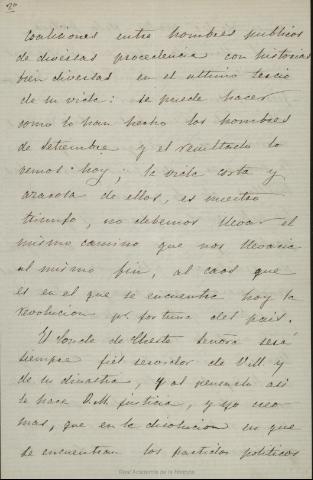 2º
Coaliciones entre hombres publicos
de diversas procedencia con historias
bien diversas en el ultimo tercio
de su vida: se puede hacer
como lo han hecho los hombres
de Setiembre y el resultado lo
vemos hoy; la vida corta y
azarosa de ellos, es nuestro
triunfo, no debemos llevar el
mismo camino que nos llevaria
al mismo fin, al caos que
es en el que se encuentra hoy la
revolucion pr. fortuna del pais.
El Conde de Cheste Señora será
siempre fiel servidor de V.M y
de su dinastia, y al pensarlo asi
le hace V.M. justicia, y yo creo
mas, que en la disolucion en que
se encuentran los partidos politicos
Real Academia de la Historia